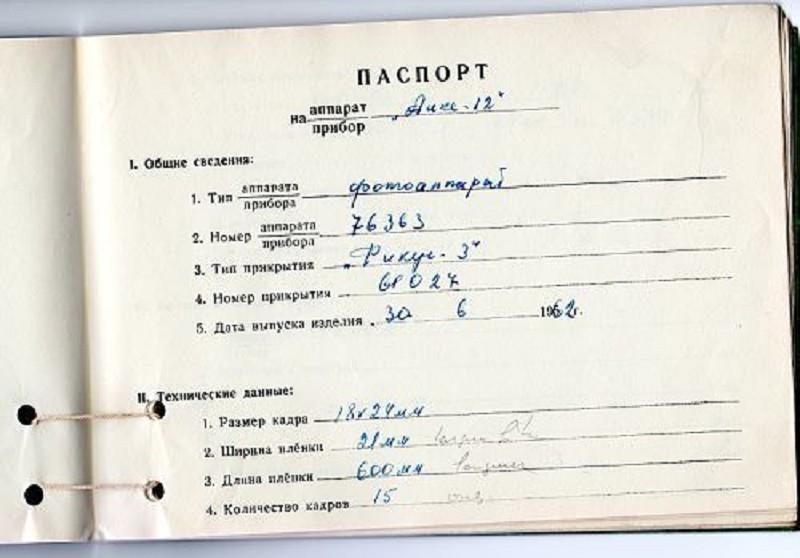 ПАСПОРТ
на аппарат „Аякс-12"
прибор
I. Общие сведения:
1. Тип аппарата фотоаппарат
прибора
2. Номер аппарата 76363
прибора
3. Тип прикрытия
4. Номер прикрытия
5. Дата выпуска изделия 30 6 1962г.
II. Технические данные:
1. Размер кадра 18х24мм
2. Ширина плёнки 21мм
3. Длина плёнки 600мм
4. Количество кадров 15